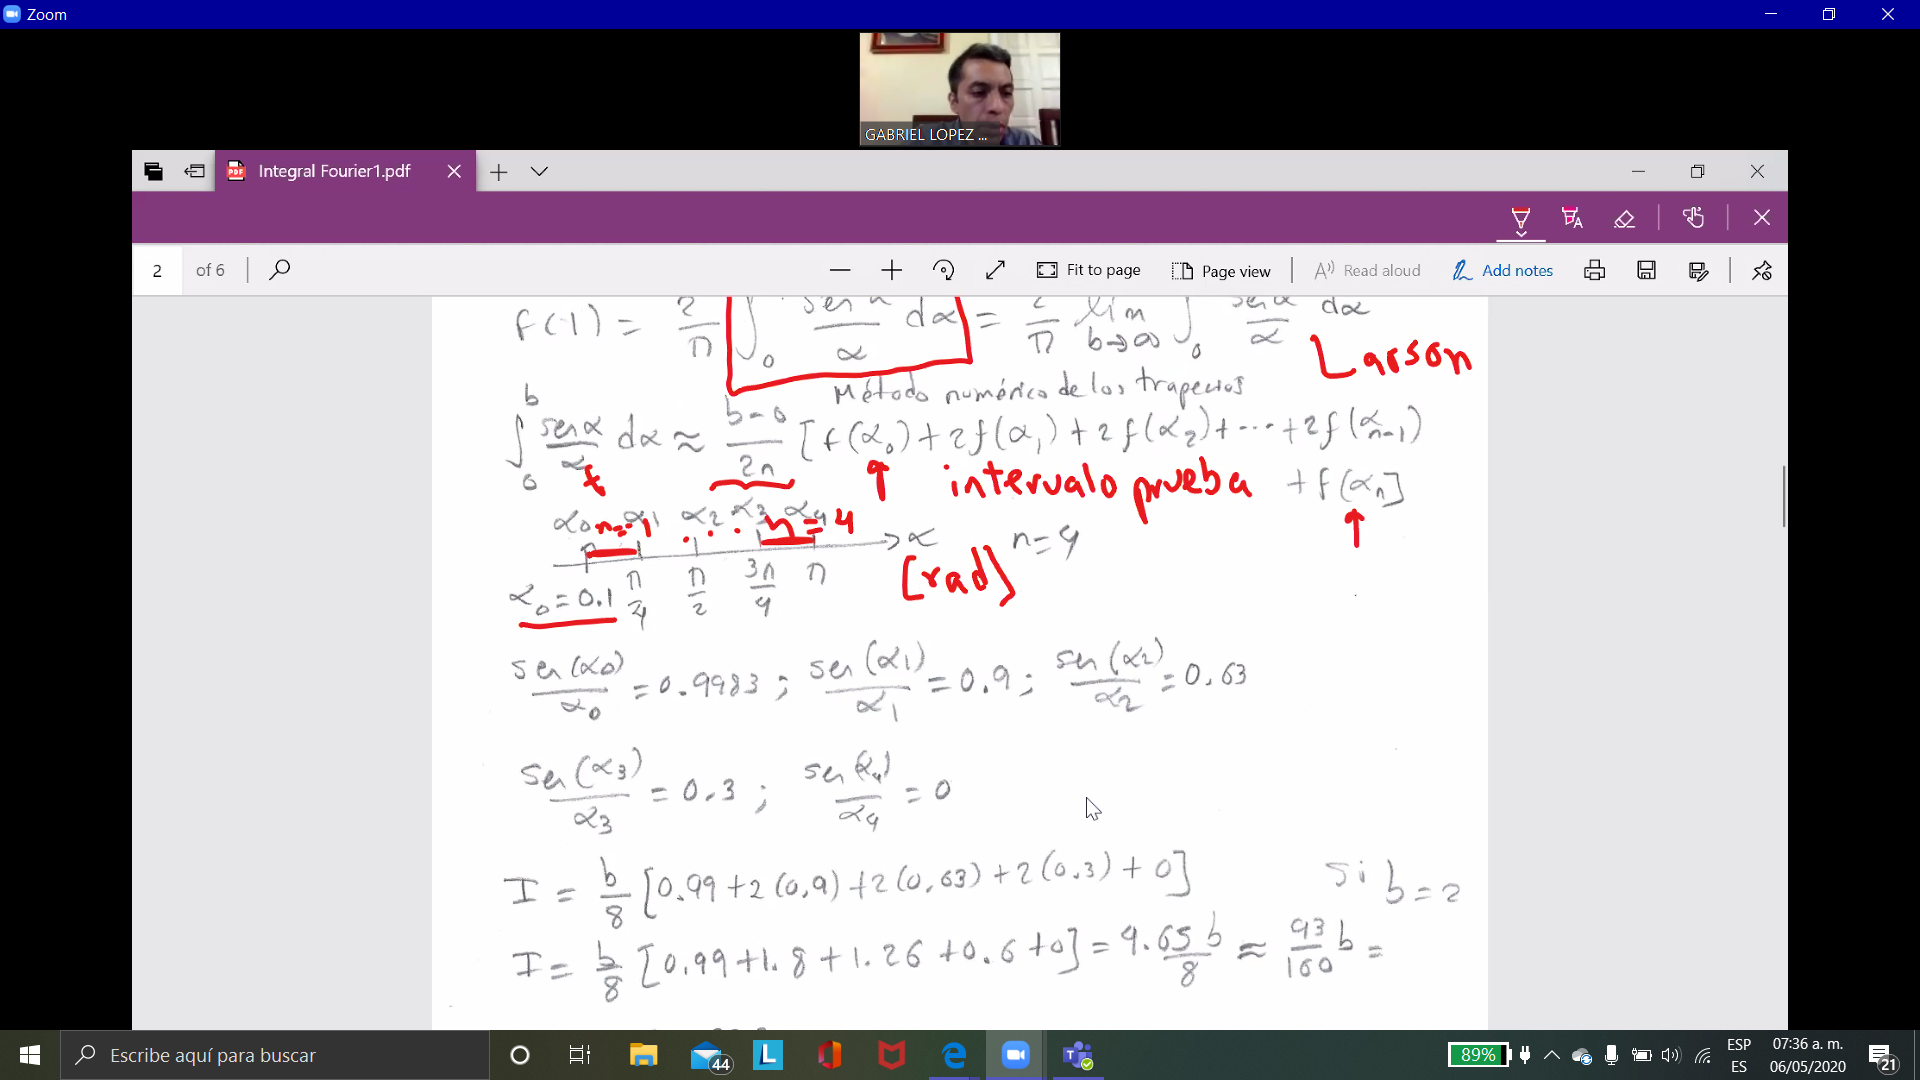 Zoom
GABRIEL LOPEZ ...
Integral Fourier1.pdf
2 of 6
Fit to page
Page view
Read aloud
Add notes
f(1) = 2/π ∫0 sen α/α dα = 2/π lim b→∞ ∫0 sen α/α dα
Larson
Método numérico de los trapecios
∫0^b sen α/α dα ≈ b-0/2n [f(α0) + 2f(α1) + 2f(α2) + ··· + 2f(αn-1)
+ f(αn]
intervalo prueba
α0 α1 α2 α3 α4
n=1 ... n=4
→ α n=4
[rad]
π/4 π/2 3π/4 π
α0 = 0.1
sen(α0)/α0 = 0.9983 ; sen(α1)/α1 = 0.9 ; sen(α2)/α2 = 0.63
sen(α3)/α3 = 0.3 ; sen(α4)/α4 = 0
I = b/8 [0.99 + 2(0.9) + 2(0.63) + 2(0.3) + 0]
si b = 2
I = b/8 [0.99 + 1.8 + 1.26 + 0.6 + 0] = 4.65 b/8 ≈ 93/160 b =
Escribe aquí para buscar
44
89%
ESP
ES
07:36 a. m.
06/05/2020
21